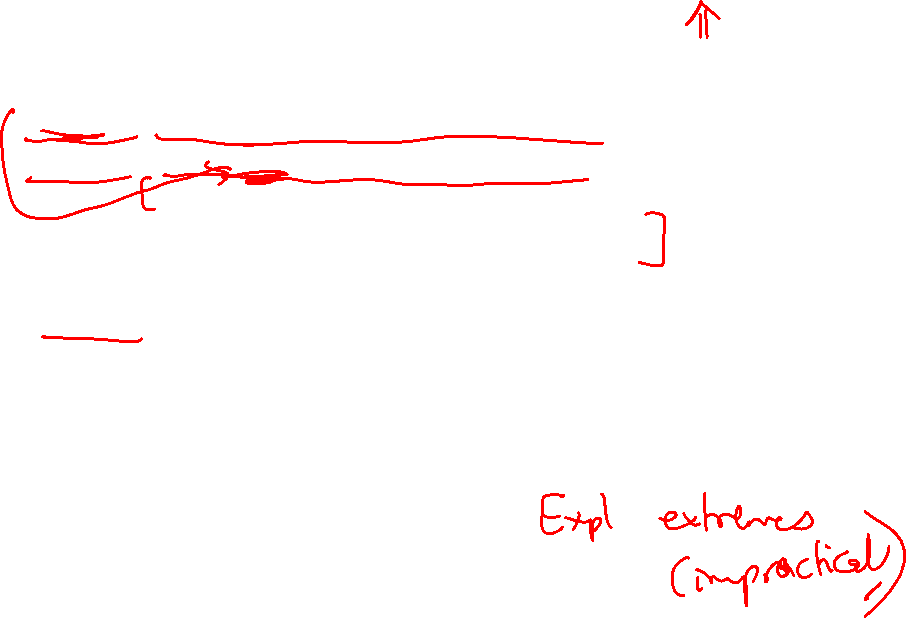 Expl extremes
(impractical)